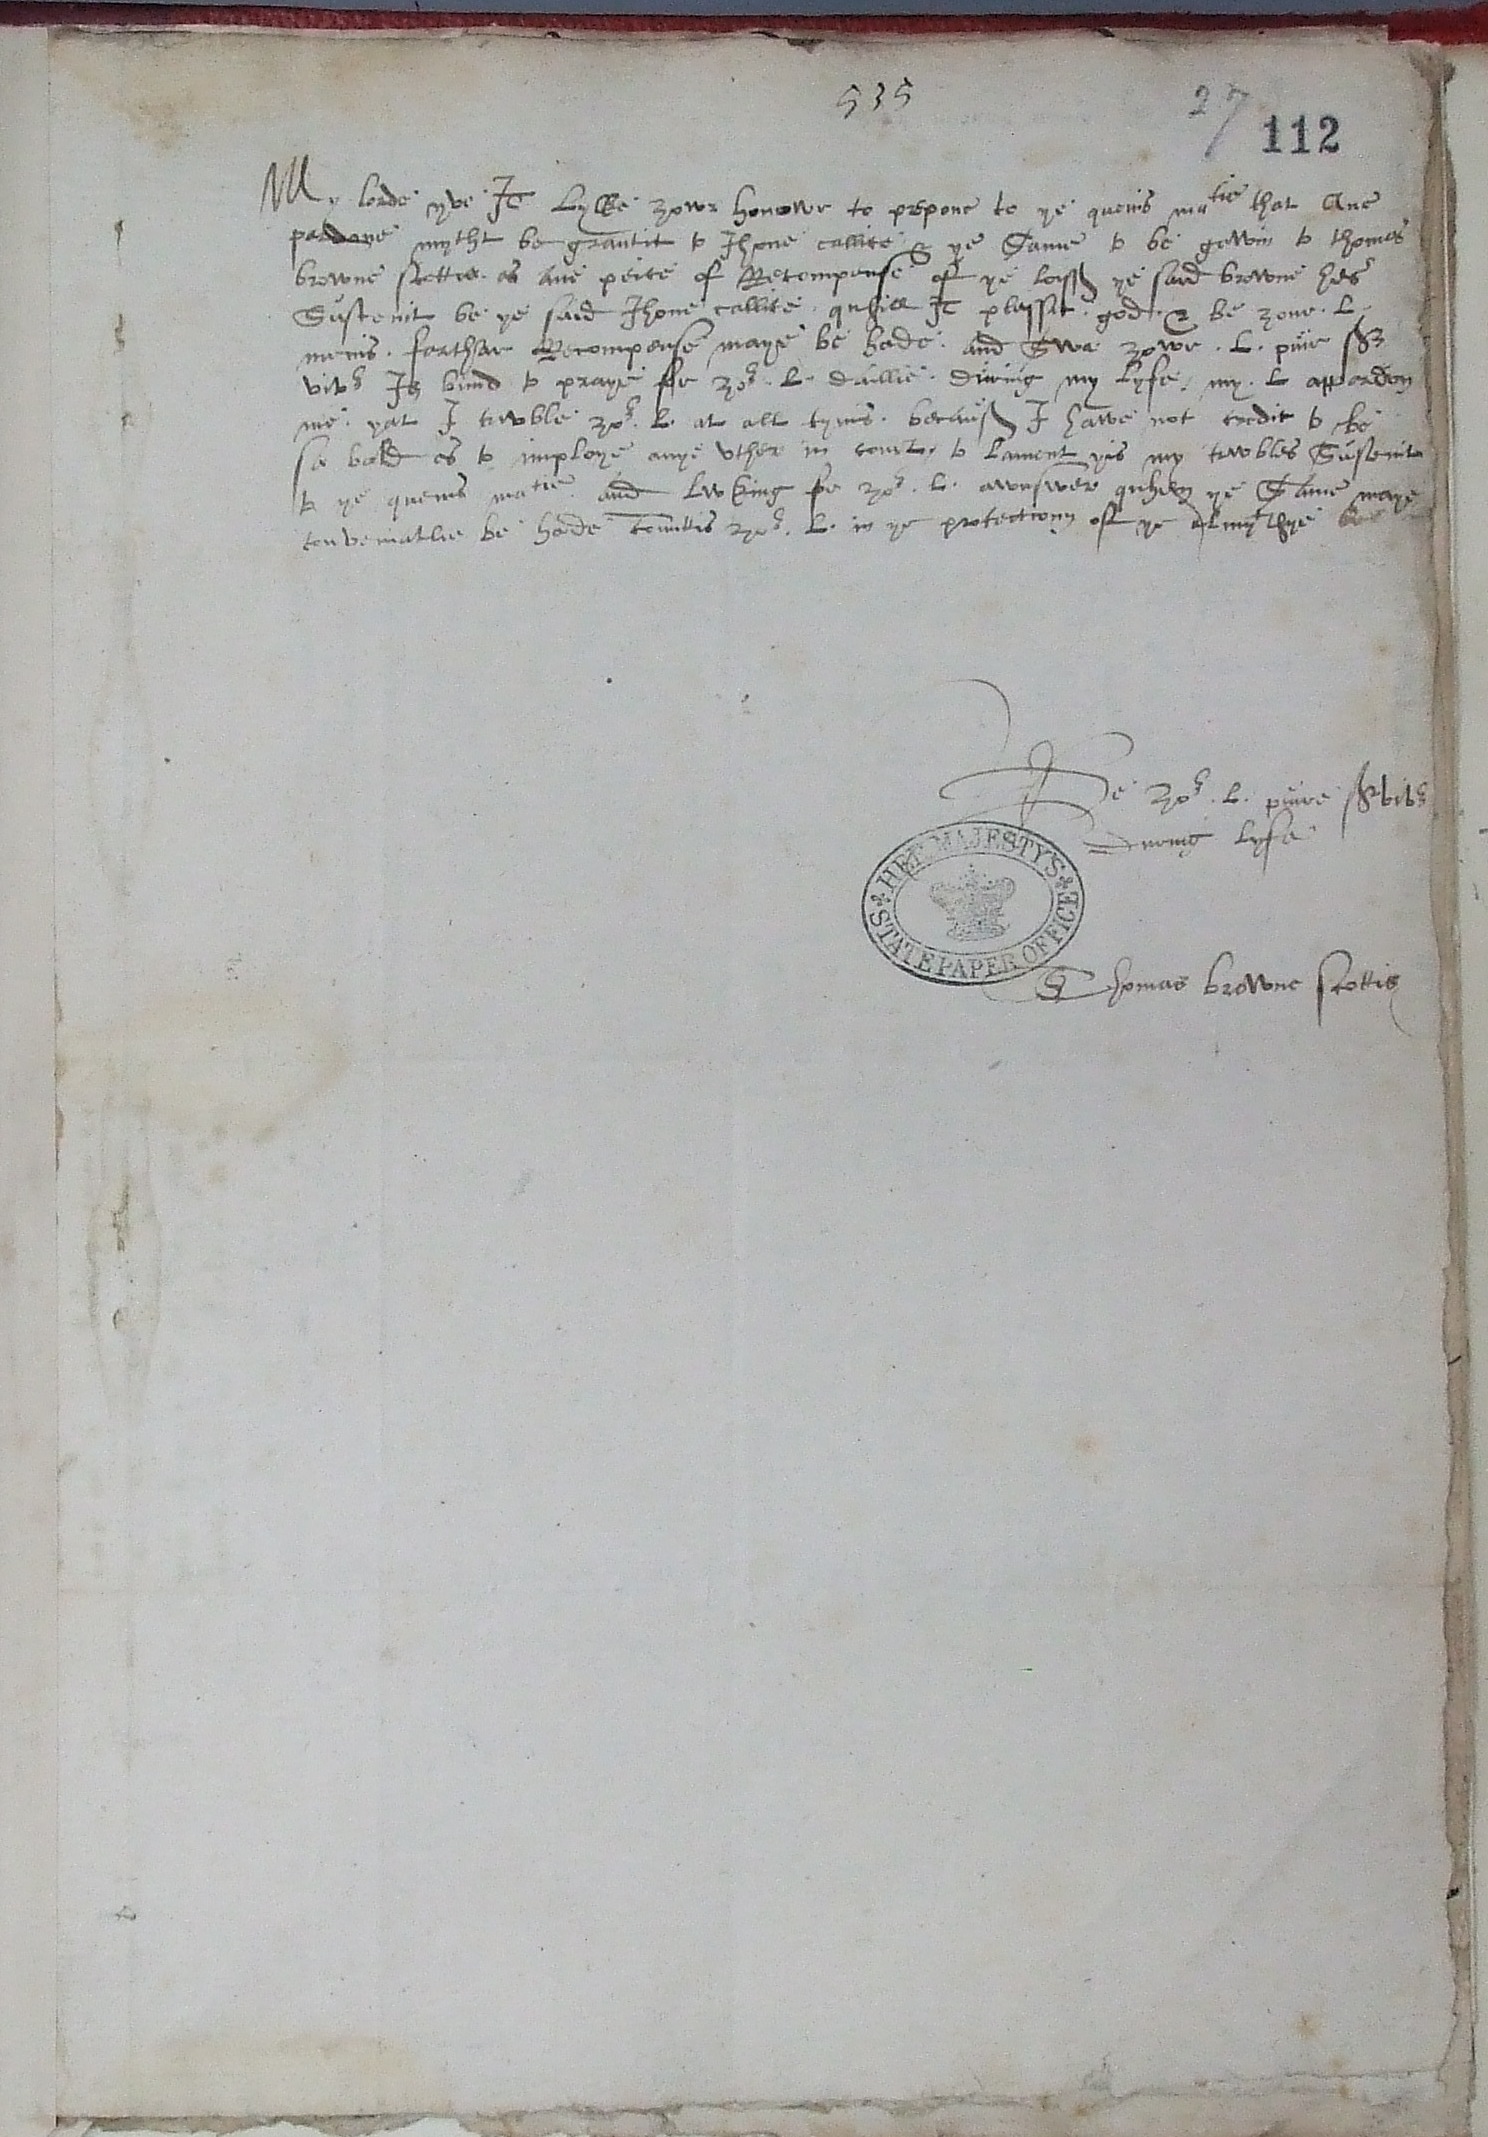 535
27
112
My lorde yve It Lykke zowr honowr to prepone to ye quenis matie that Ane
pardone mytht be grantit to Jhone callite & ye Same to be gewin to thomas
browne skottis as Ane peice of Recompense of ye loyss ye said browne hes
Sustenit be ye said Jhone callite quhill It plessit god & be zour L
menis farthar Recompense maye be hade and Swa zowr L puir
Is bund to praye for zor L daillie during my lyfe my L appardon
me yat I trwble zor L at all tymis becauss I hawe not credit to be
so bald as to imploye anye vther in court to Lament yis my trwbles Sustenit
to ye quenis matie and Lwking for zor L awnswer quhen ye Same maye
conveniatlie be hade comittis zor L in ye protectionn of ye Almythye
Be zor L puire
During lyfe
HER MAJESTY'S
STATE PAPER OFFICE
Thomas browne skottis